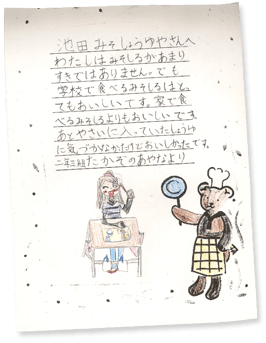 池田みそしょうゆやさんへ
わたしはみそしるがあまり
すきではありません。でも
学校で食べるみそしるはと
てもおいしいです。家で食
べるみそしるよりもおいしいです
あとやさいに入っていたしょうゆ
に気づかなかたけどおいしかたです。
二年三組 かぞのあやなより